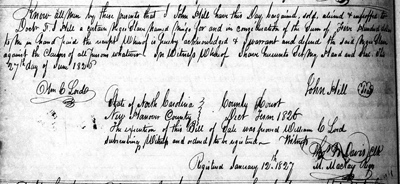 Know all Men by these presents that I John Hill have this Day, bargained, sold, aliened & enfeoffed to
Doctr F. J Hill a certain Negro Slave named for and in consideration of the Sum of Four Hundred dollars
to Me in hand paid the receipt Whereof is hereby acknowledged & I warrant and defend the said Negro Slave
against the Claims of all persons whatever. In Witness Whereof I have hereunto Set My Hand and Seal this
27th day of June 1826
Wm C. Lord John Hill (Seal)
State of North Carolina } County Court
New Hanover County } Dect Term 1826
The execution of this Bill of Sale was proved William C Lord
subscribing Witness and ordered to be registered Witness
Davis Clk
Registered January 12th 1827 M. MacKay Regr